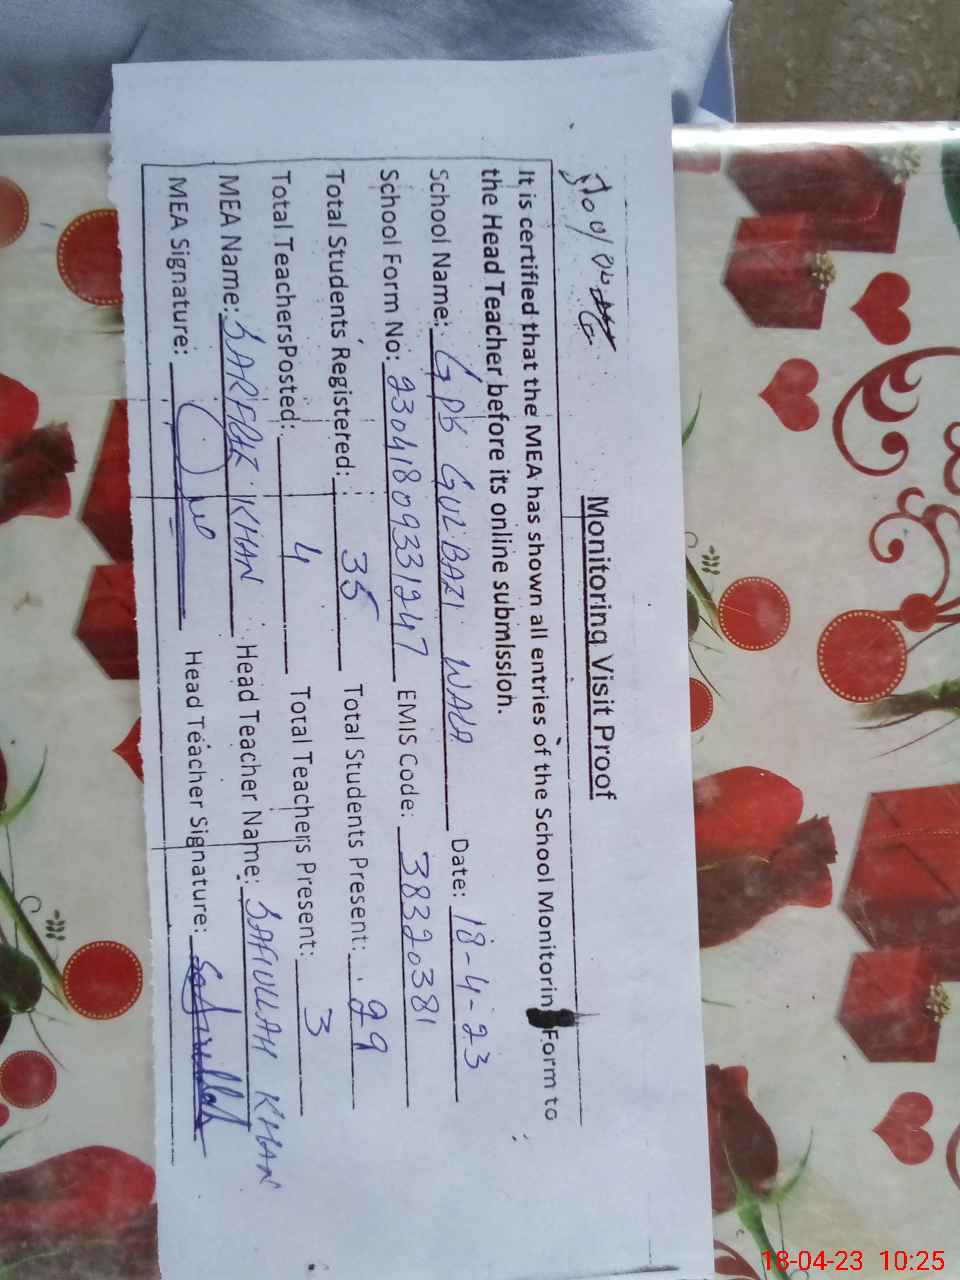 Monitoring Visit Proof
It is certified that the MEA has shown all entries of the School Monitorin Form to
the Head Teacher before its online submission.
School Name: GPS GULBAZI WALA Date: 18-4-23
School Form No: 23041809331247 EMIS Code: 38320381
Total Students Registered: 35 Total Students Present: 29
Total TeachersPosted: 4 Total Teachers Present: 3
MEA Name: SARFRAZ KHAN Head Teacher Name: SAFIULLAH KHAN
MEA Signature: Head Teacher Signature: Safiullah
18-04-23 10:25